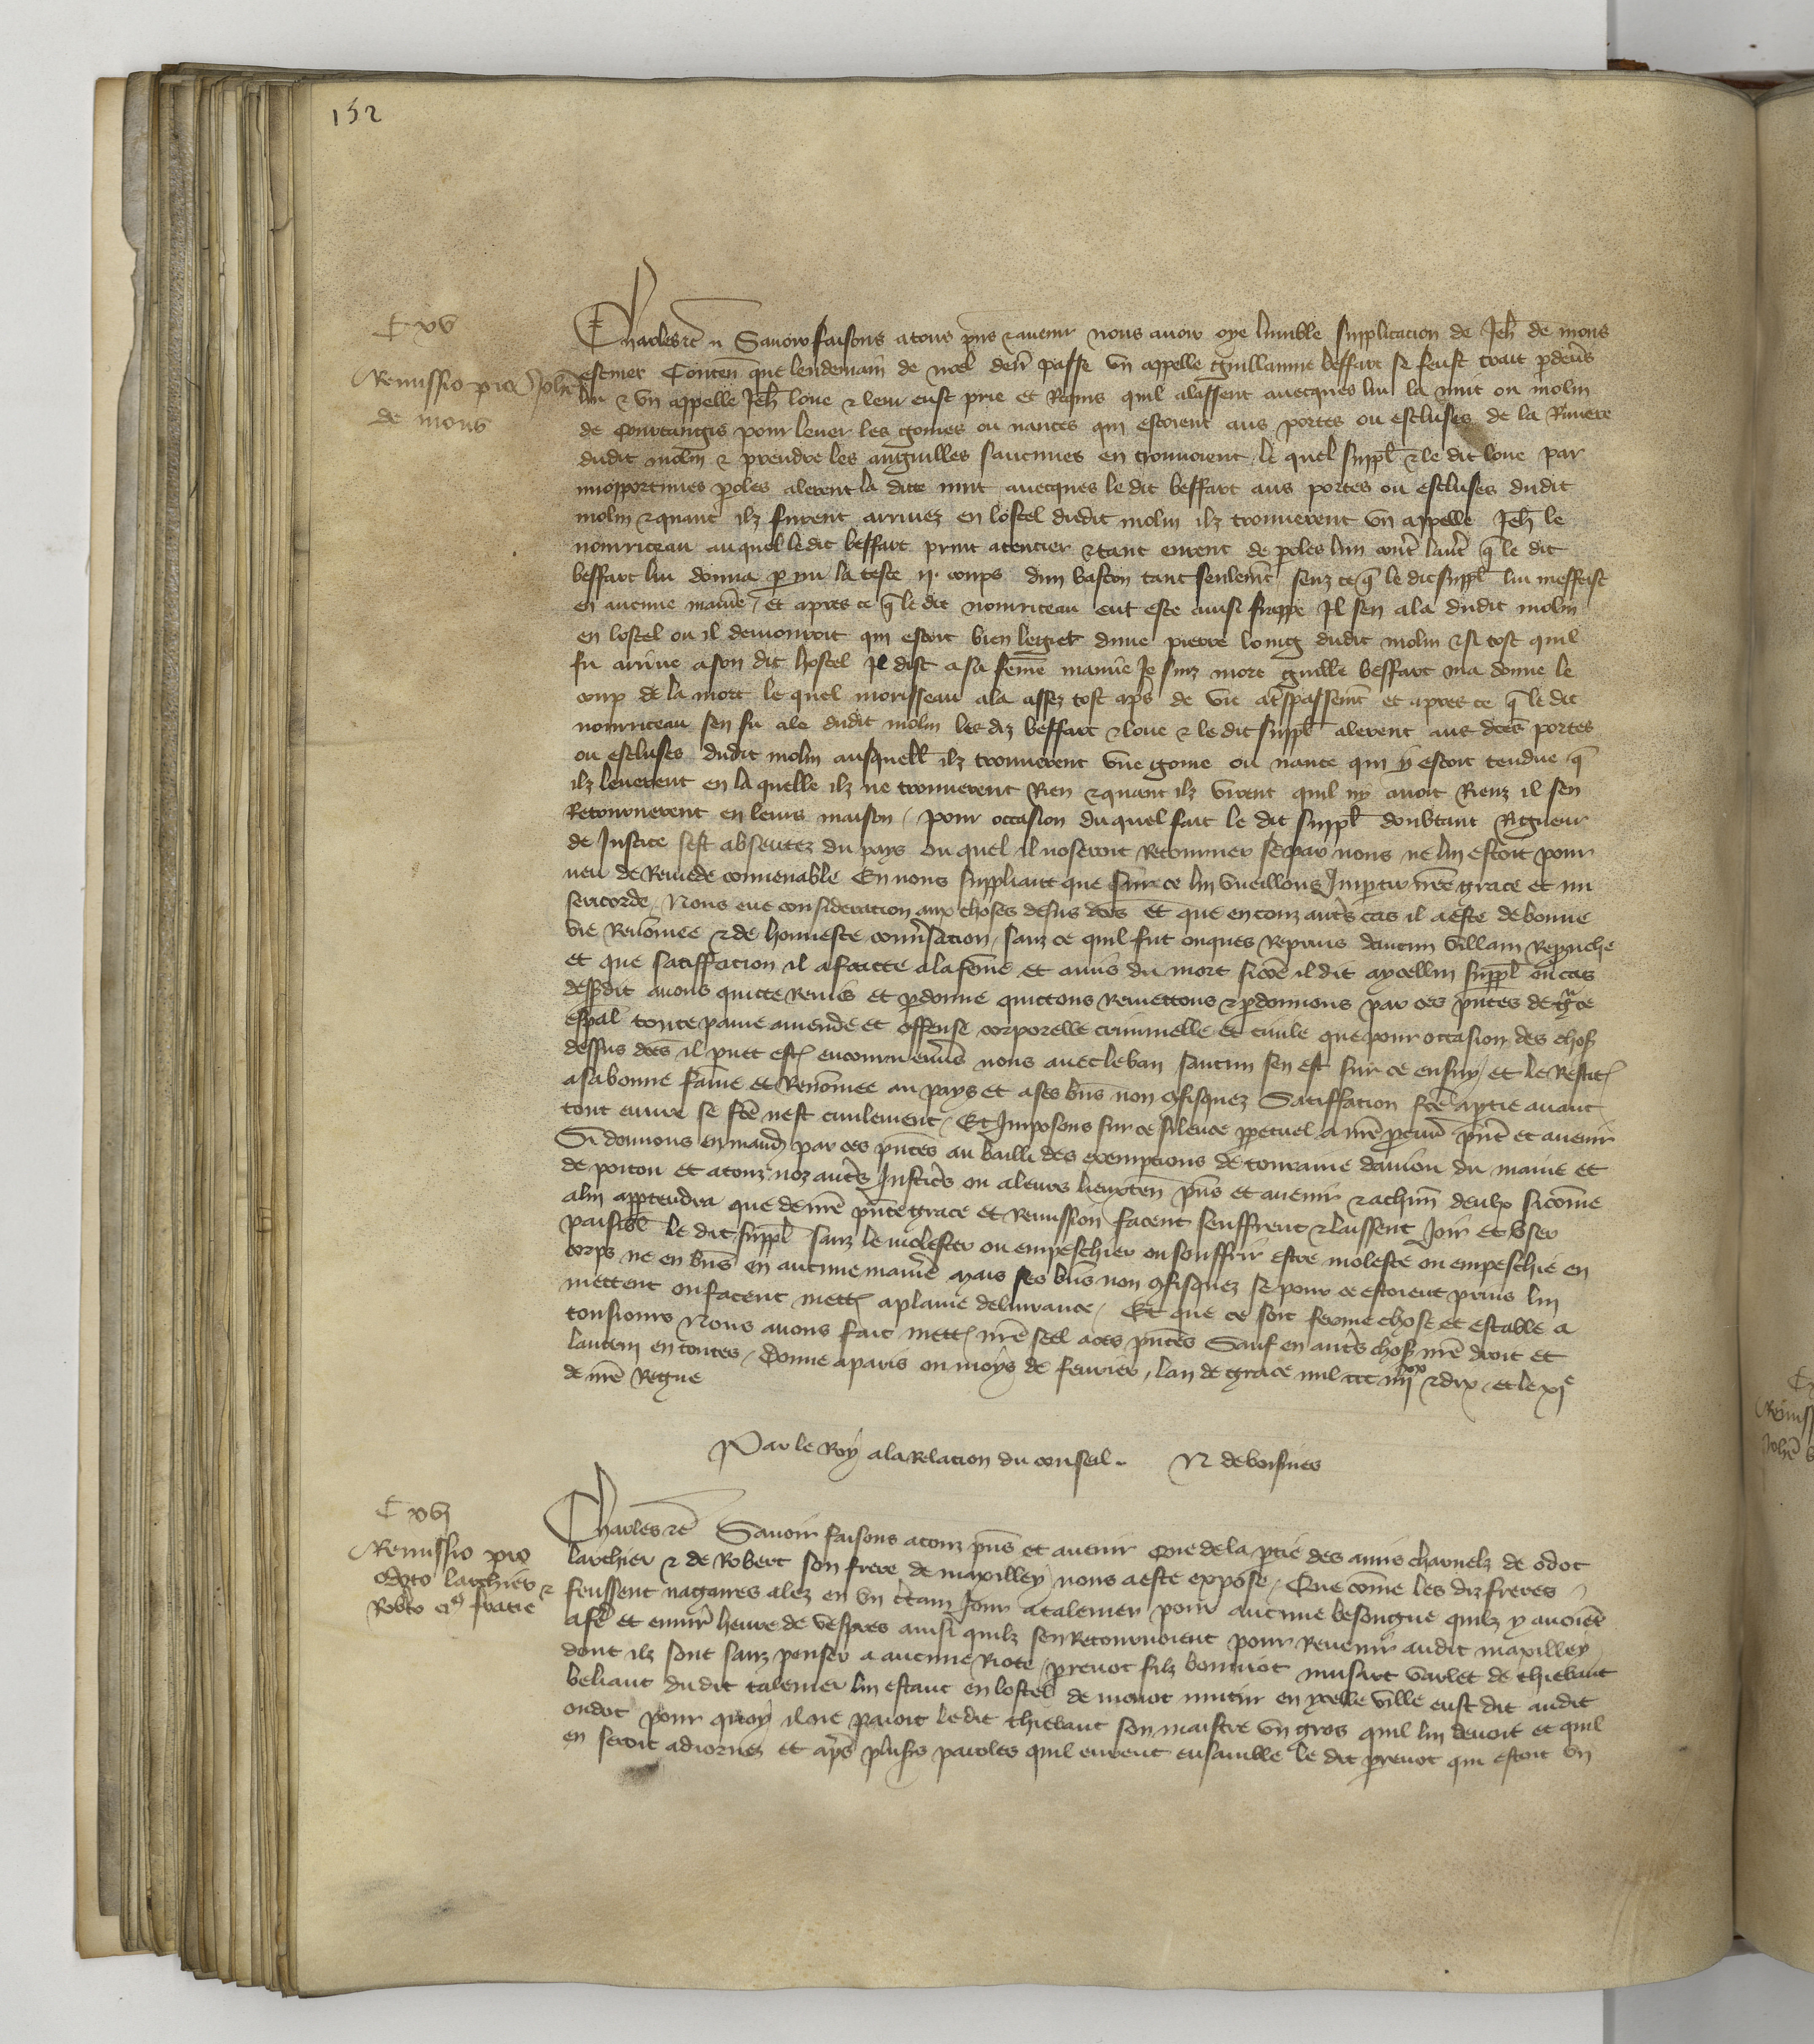 152
C xv
Remissio pro Johēe
de mons
Charles etc Savoir faisons a tous pn̄s & avenir nous avoir oye lumble supplicacion de Jeh̄ de mons
escuier Conten̄ que lendemain de noel dern̄ passe un appelle guillaume beffart se feust trait p devs
lui & un appelle Jeh̄ loue & leur eust prie et Requis quil alassent avecques lui la nuit ou molin
de Courtangis pour lever les gomes ou nances qui estoient aus portes ou escluses de la Riviere
dudit molin & prendre les anguilles saucunes en trouvoient le quel suppl̄ & le dit loue par
inopportunes poles alerent la dicte nuit avecques le dit beffart aus portes ou escluses dudit
molin & quant ilz furent arrivez en lostel dudit molin ilz trouverent un appelle Jeh̄ le
nourriceau auquel le dit beffart print a tencier & tant eurent de poles lun cont̄ laut̄ q̄ le dit
beffart lui donna p mi la teste ii. coups dun baston tant seulemt̄ senz ce q̄ le dit suppl̄ lui meffeist
en aucune maniē / et apres ce q̄ le dit nourriceau eut este ainsi frappe Il sen ala dudit molin
en lostel ou il demouroit qui estoit bien le giet dune pierre loing dudit molin & si tost quil
fu arrive a son dit hostel Il dist a sa fēme mamie Je suiz mort guille beffart ma donne le
coup de la mort le quel morisseau ala assez tost aps̄ de vie a tspassemt̄ et apres ce q̄ le dit
nourriceau sen fu ale dudit molin les diz beffart & loue & le dit suppl̄ alerent aus dc̄es portes
ou escluses dudit molin ausquell̄ ilz trouverent une gome ou nance qui y estoit tendue q̄
ilz leverent en la quelle ilz ne trouverent Rien & quant ilz virent quil ny avoit Rienz il sen
Retournerent en leurs maison / pour occasion du quel fait le dit suppl̄ doubtant Rigueur
de Justice sest absentez du pays ou quel il noseroit Retourner se par nous ne lui estoit pour
veu de Remede convenable En nous suppliant que sur ce lui vueillons Impartir nr̄e grace et mi
sericorde / Nous eue consideracion aux choses desus dc̄es et que en touz aut̄s cas il a este de bonne
vie Renōmee & de honneste convsacion / sanz ce quil fut onques Reprins daucun villain Reprouche
et que satiffacion il a faicte a la fēme et amis du mort sicōe il dit a ycellui suppl̄ ou cas
dessdit avons quicte Remis et pdonne quictons Remettons & pdonnons par ces pn̄tes de gr̄ce
esp̄al toute paine amende et offense corporelle criminelle et civile que pour occasion des chos̄
dessus dc̄es il puet estr̄ encouru envs̄ nous avec le ban saucun sen est sur ce ensuy / et le Restit̄
a sa bonne fame et Renōmee au pays et a ses bn̄s non cōfisquez Satiffation fcē a ptie avant
tout euvre se fcē nest civilement / Et Imposons sur ce silence ppetuel a nr̄e pcur̄ pn̄t et avenir
Si donnons en mand̄ par ces pn̄tes au bailli des exempcions de touraine danjou du maine et
de poitou et a touz noz aut̄s Justiciēs ou a leurs lieuxten̄ pn̄s et avenir & a chūn deulx sicōme
a lui apptendra que de nr̄e pn̄te grace et Remission facent seuffrent & laissent Joir et User
paisibl̄ le dit suppl̄ sanz le molester ou empeschier ou souffrir estre moleste ou empeschie en
corps ne en bn̄s en aucune maniē mais ses bn̄s non cōfisquez se pour ce estoient prins lui
mettent ou facent mettr̄ a plaine delivrance / Et que ce soit ferme chose et estable a
tousjours Nous avons fait mettr̄ nr̄e seel a ces pn̄tes Sauf en aut̄s chos̄ nr̄e droit et
lautrui en toutes / Donne a paris ou moys de fevrier / lan de grace mil ccc iiiixx & dix et le xie
de nr̄e Regne
Par le Roy a la Relacion du conseil . N de voisines
C xvj
Remissio pro
Odoto larchier &
Robto ej fratre
Charles etc̄ Savoir faisons a touz pn̄s et avenir Que de la ptie des amis charnelz de Odot
larchier & de Robert son frere de maxilley nous a este expose / Que cōme les diz freres
feussent nagaires alez en un ctain Jour a talemer pour aucune besongne quilz y avoiēt
a fe et environ heure de vespres ainsi quilz sen Retournoient pour Revenir audit maxilley
dont ilz sont sanz penser a aucune Riote / prevot filz bonniot musart varlet de thiebaut
beliaut dudit talemer lui estant en lostel de monot mutin en ycelle ville eust dit audit
oudot pour quoy il ne paioit le dit thiebaut son maistre un gros quil lui devoit et quil
en seroit adiornez et aps̄ plus̄s paroles quil eurent ensamble le dit prevot qui estoit un